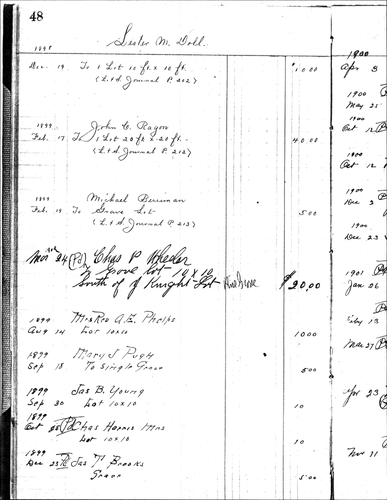 48
Lester M. Doll.
1898
Dec. 19 To 1 Lot 10 ft x 10 ft. 10 00
(L & d. Journal P. 212)
1899 John C. Ragon
Feb. 17 To 1 Lot 20 ft x 20 ft. 40.00
(L & d. Journal P. 212)
1899 Michael Berriman
Feb. 19 To Grave Lot 5 00
(L & d. Journal P. 213)
Nov 24 (Pd) Chas P Wheeler
Grove Lot 10 x 10
South of Knight Lot $20.00
1899 Mrs Rev A. E. Phelps
Aug 14 Lot 10x10 10 00
1899 Mary J Pugh
Sep 18 To Single Grave 5 00
1899 Jas B. Young
Sep 30 Lot 10x10 10
1899
Oct Pd Chas Harris Mrs
Lot 10x10 10
1899
Dec 23 Pd Jas T. Brooks
Grave 5 00
1900
Apr 3
1900
May 25
1900
Oct 12
1900
Oct 12
1900
Dec 2
1900
Dec 23
1901
Jan 06
Feb 13
Mar 27
Apr 23
Nov 11